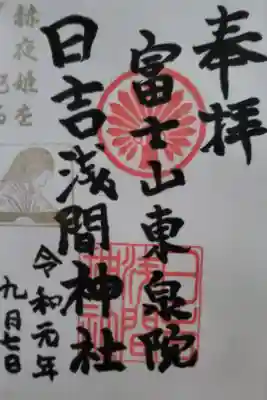 奉拝
富士山東泉院
日吉浅間神社
令和元年
九月七日
赫夜姫を